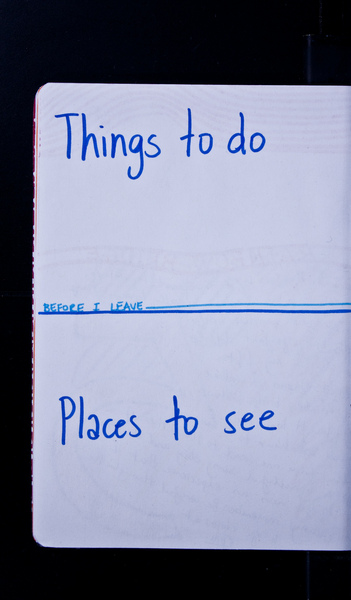 Things to do
BEFORE I LEAVE
Places to see